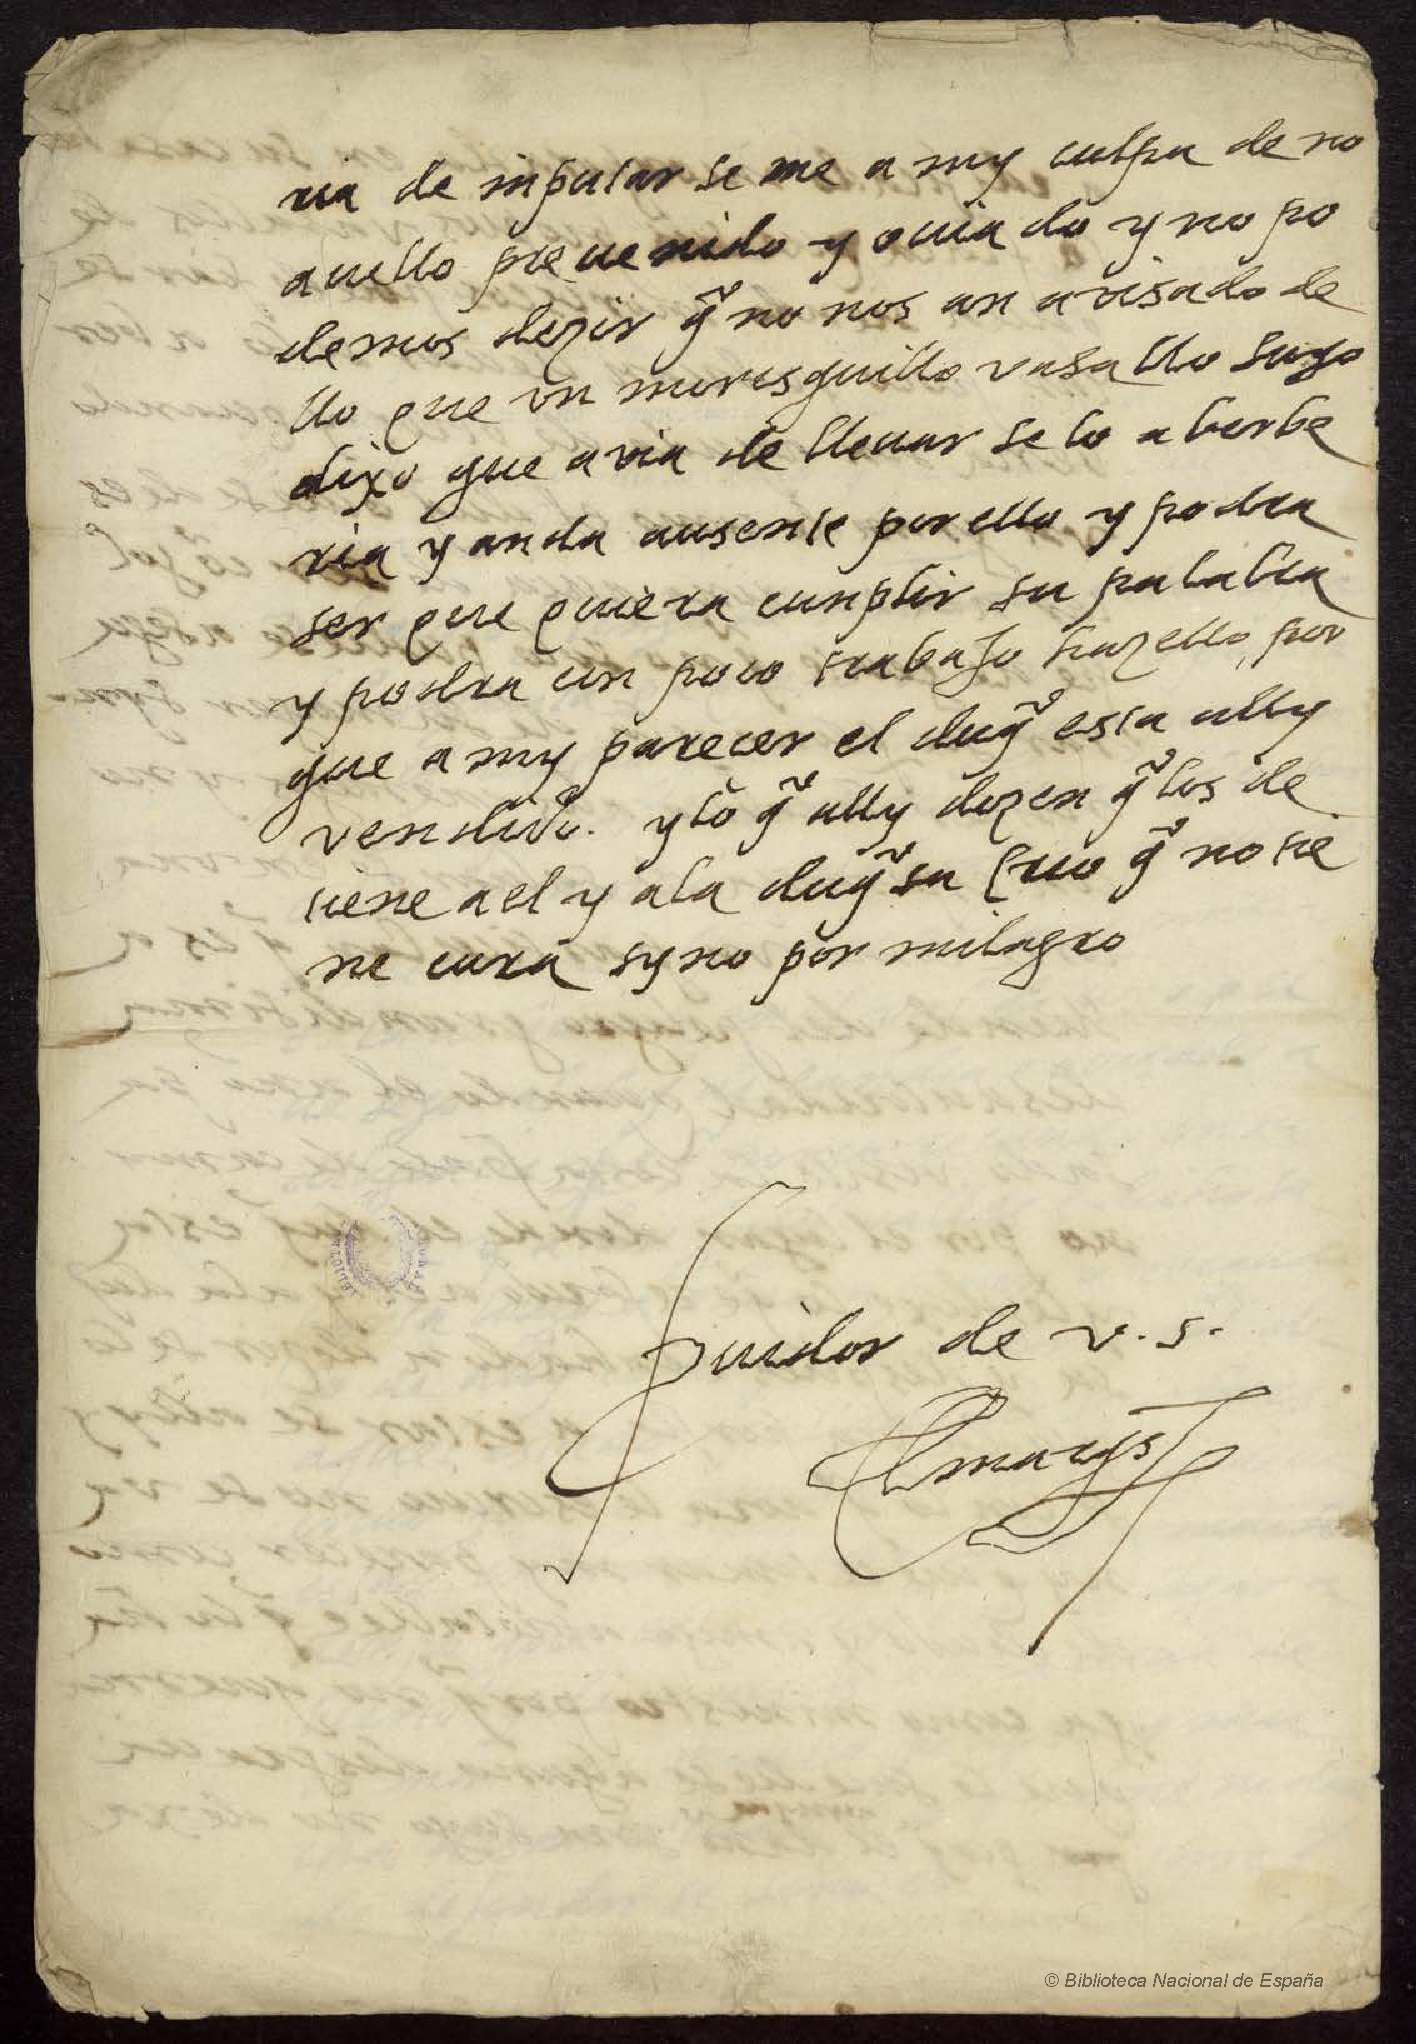 ria de inputar se me a my culpa de no
avello prevenido y oviado y no po
demos dezir q̃ no nos an avisado de
llo que un morisquillo vasallo suyo
dixo que avia de llevar selo a berbe
ria y anda ausente por ello y podra
ser que quiera cunplir su palabra
y podra con poco trabajo hazello, por
que a my parecer el duq̃ esta ally
vendido. y lo q̃ ally dizen q̃ los de
tiene a el y a la duq̃sa q̃ no tie
ne cura syno por milagro
de v. s.
El marqs
© Biblioteca Nacional de España